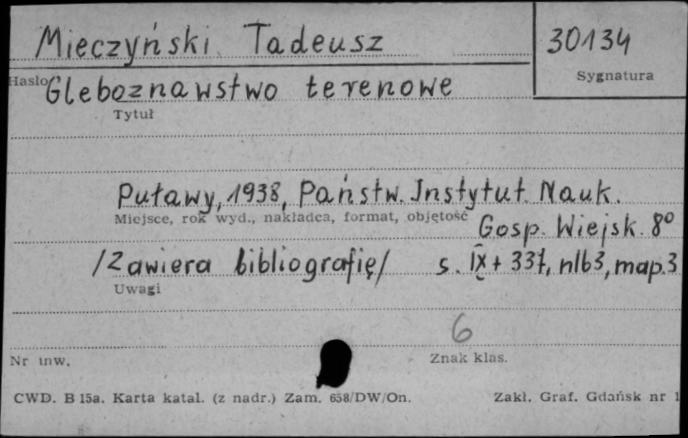 Mieczyński Tadeusz 30134
Hasło Sygnatura
Gleboznawstwo terenowe
Tytuł
Puławy, 1938, Państw. Instytut Nauk.
Miejsce, rok wyd., nakładca, format, objętość
Gosp. Wiejsk. 8º
/Zawiera bibliografię/ s. IX + 331, nlb3, map.3
Uwagi
6
Nr inw. Znak klas.
CWD. B 15a. Karta katal. (z nadr.) Zam. 658/DW/On. Zakł. Graf. Gdańsk nr 1